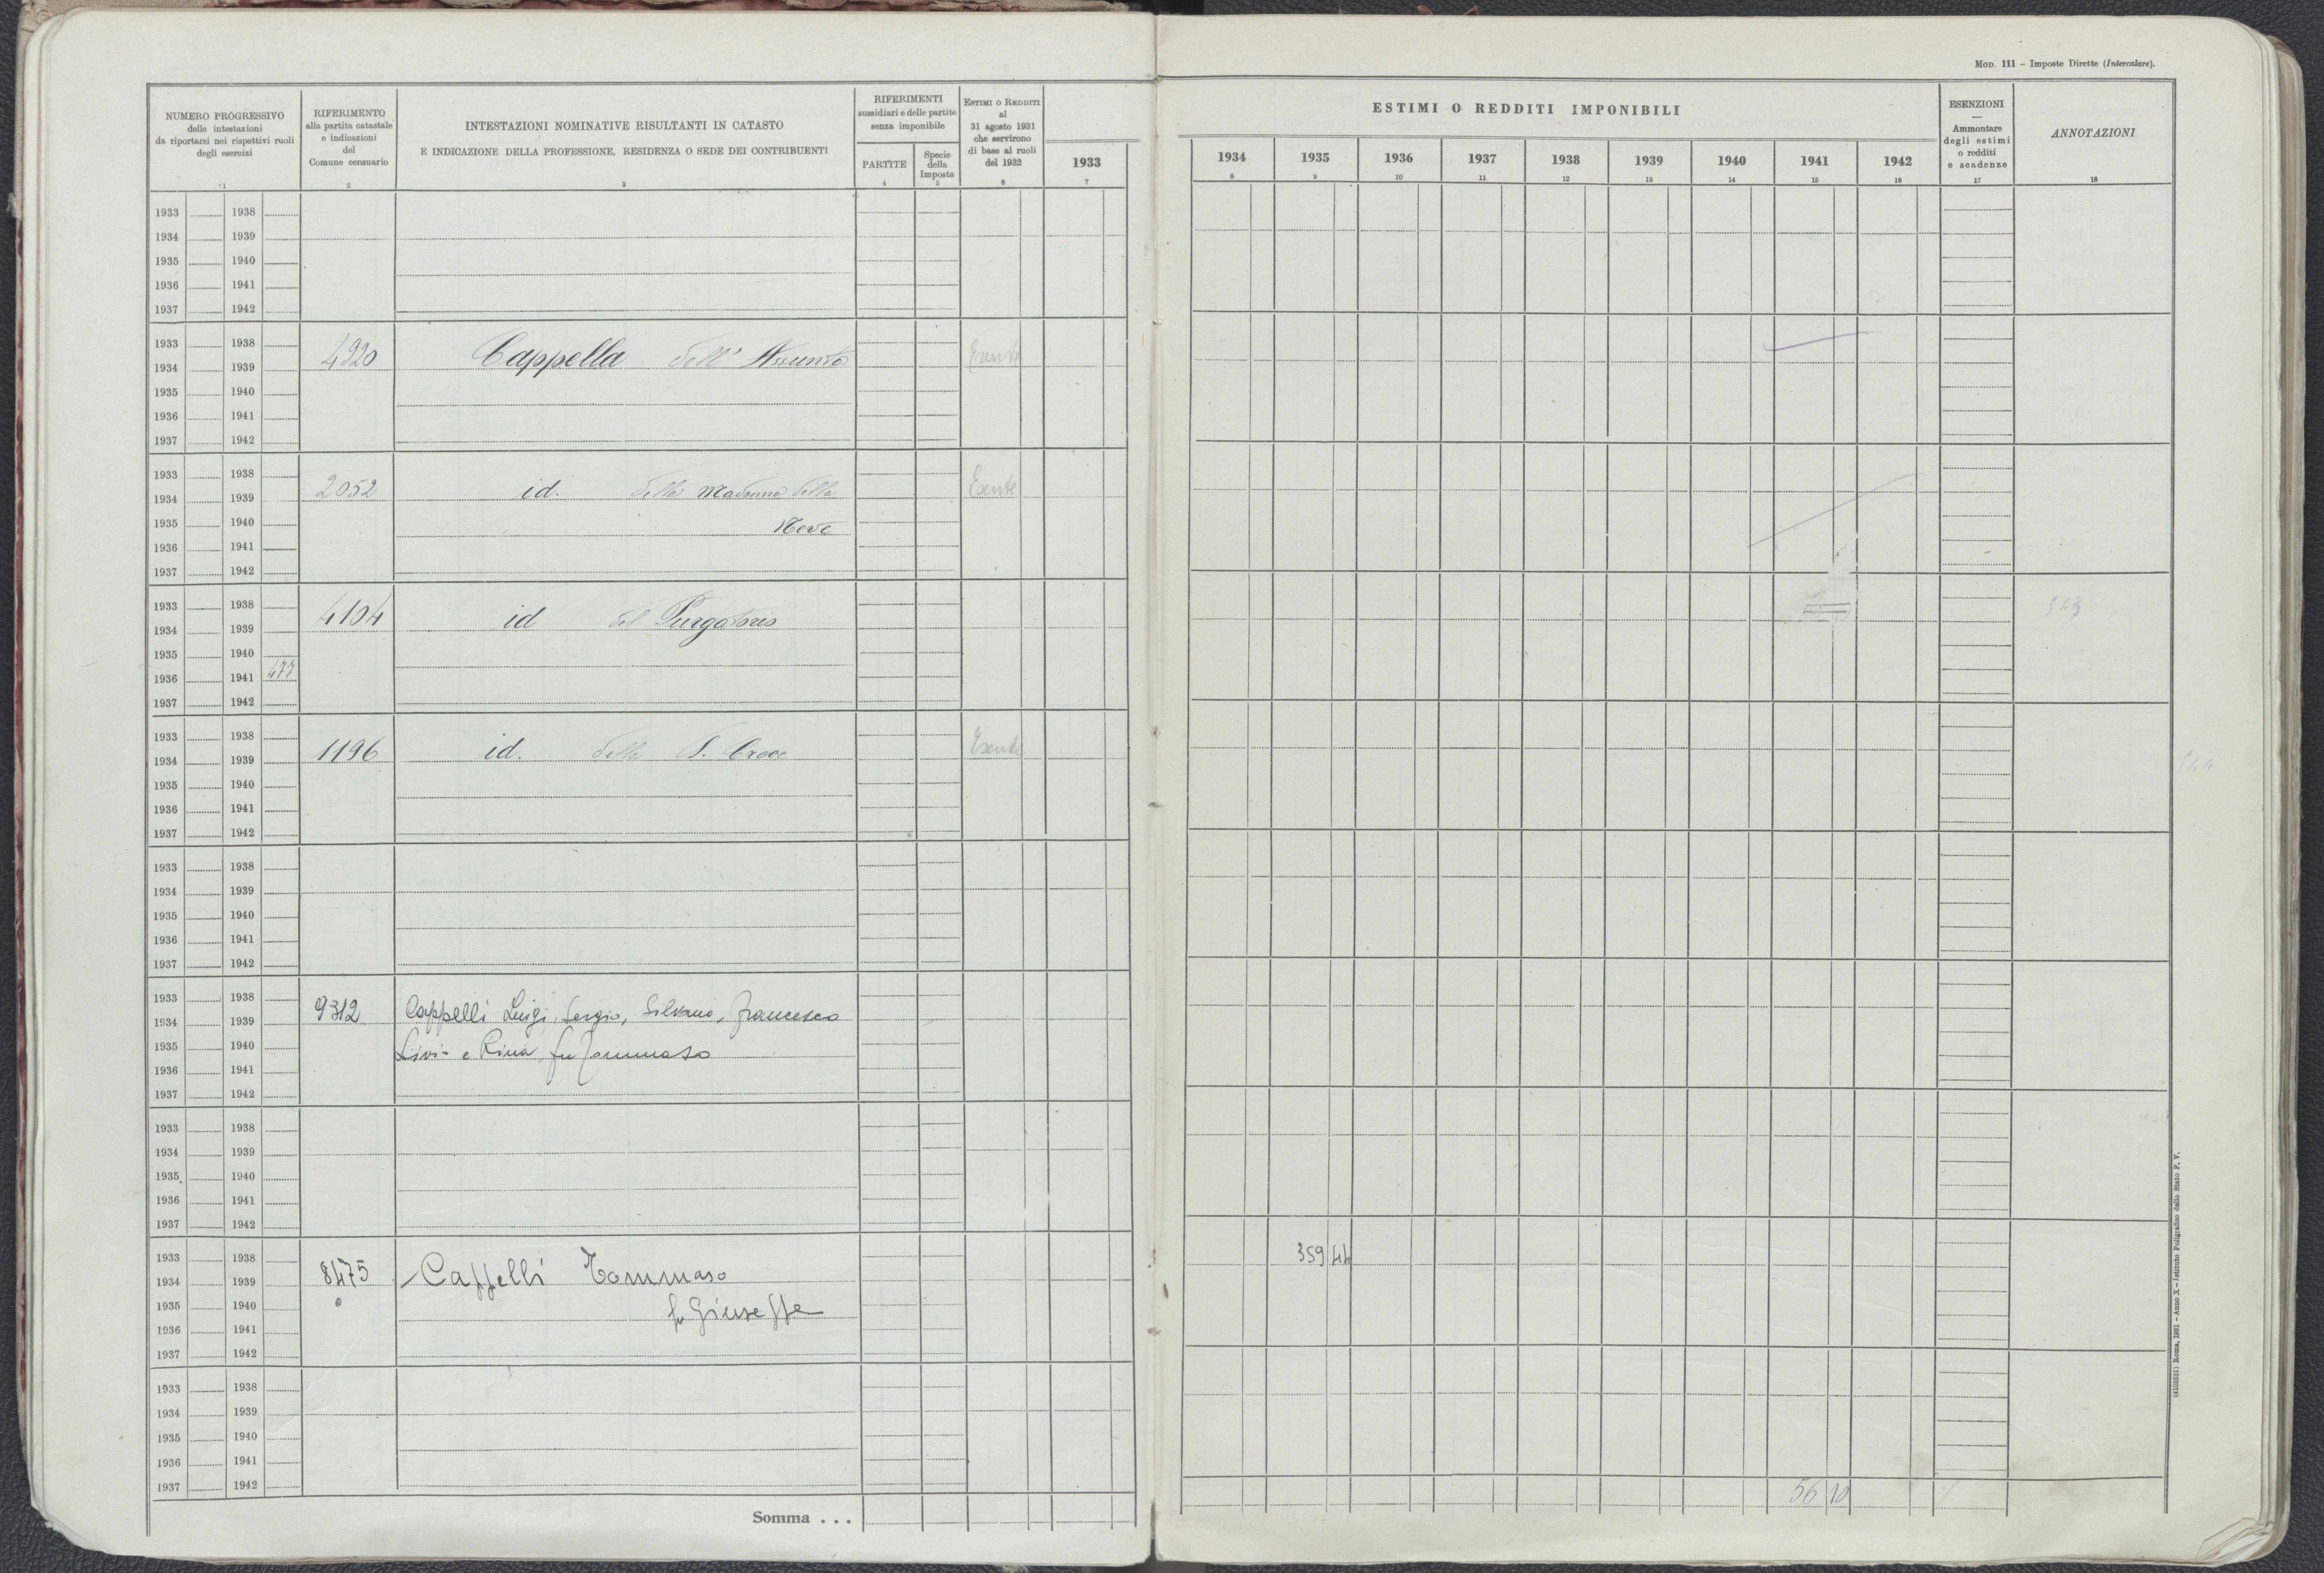 MOD. 111 – Imposte Dirette (Intercalare).
NUMERO PROGRESSIVO
delle intestazioni
da riportarsi nei rispettivi ruoli
degli esercizi
1
RIFERIMENTO
alla partita catastale
e indicazioni
del
Comune censuario
2
INTESTAZIONI NOMINATIVE RISULTANTI IN CATASTO
E INDICAZIONE DELLA PROFESSIONE, RESIDENZA O SEDE DEI CONTRIBUENTI
3
RIFERIMENTI
sussidiari e delle partite
senza imponibile
PARTITE
4
Specie
della
Imposta
5
ESTIMI O REDDITI
al
31 agosto 1931
che servirono
di base ai ruoli
del 1932
6
1933
7
ESTIMI O REDDITI IMPONIBILI
1934 1935 1936 1937 1938 1939 1940 1941 1942
8 9 10 11 12 13 14 15 16
ESENZIONI
—
Ammontare
degli estimi
o redditi
e scadenze
17
ANNOTAZIONI
18
1933 1938
1934 1939
1935 1940
1936 1941
1937 1942
1933 1938
1934 1939 4920 Cappella dell' Assunta Esente
1935 1940
1936 1941
1937 1942
1933 1938
1934 1939 2052 id. della Madonna della Esente
1935 1940 Neve
1936 1941
1937 1942
1933 1938
1934 1939 4104 id del Purgatorio
1935 1940
1936 1941 477
1937 1942
1933 1938
1934 1939 1196 id. della S. Croce Esente
1935 1940
1936 1941
1937 1942
1933 1938
1934 1939
1935 1940
1936 1941
1937 1942
1933 1938
1934 1939 9312 Cappelli Luigi, Sergio, Silvano, Francesco
1935 1940 Livio e Rina, fu Tommaso
1936 1941
1937 1942
1933 1938
1934 1939
1935 1940
1936 1941
1937 1942
1933 1938
1934 1939 8475 Cappelli Tommaso 359 44
1935 1940 fu Giuseppe
1936 1941
1937 1942
1933 1938
1934 1939
1935 1940
1936 1941
1937 1942
Somma . . . 56 10
(4103531) Roma, 1931 – Anno X – Istituto Poligrafico dello Stato P. V.